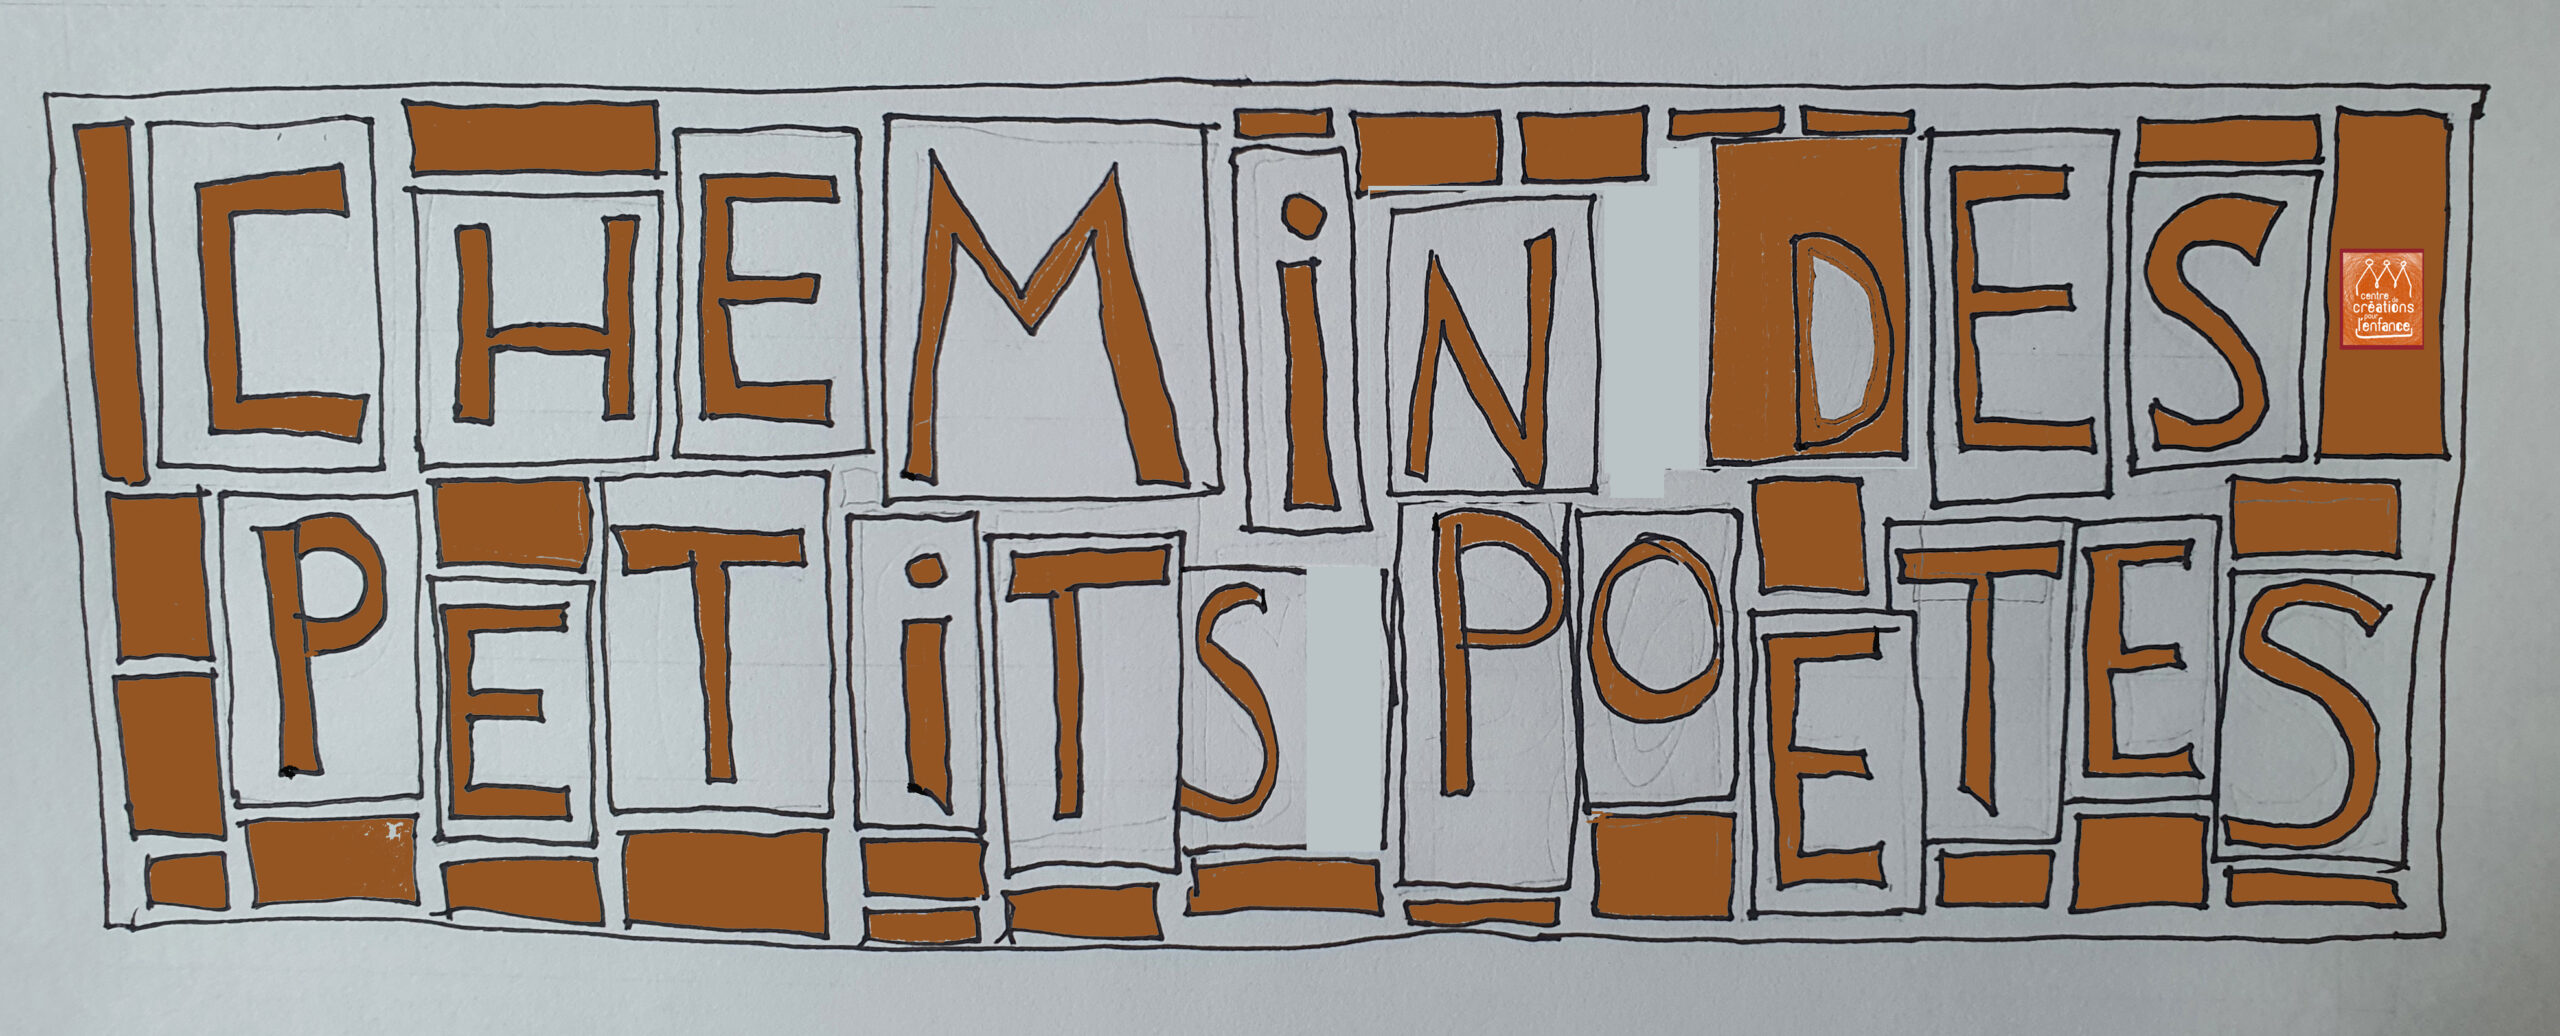 CHEMiN DES
PETiTS POETES
centre de
créations
pour
l'enfance